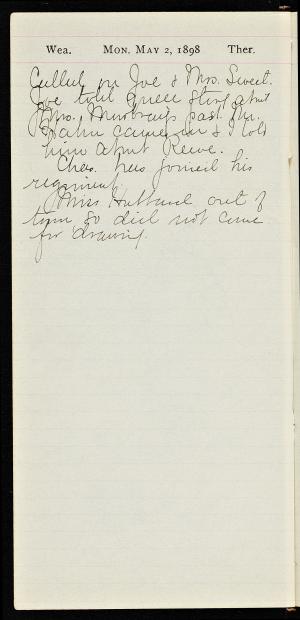 Wea. MON. MAY 2, 1898 Ther.
Called on Joe & Mrs. Sweet.
Joe told queer story about
Mrs. past. Mr.
Hahn came in & I told
him about Reeve.
Chas. has joined his
regiment.
Miss Hubbard out of
town so did not come
for drawing.